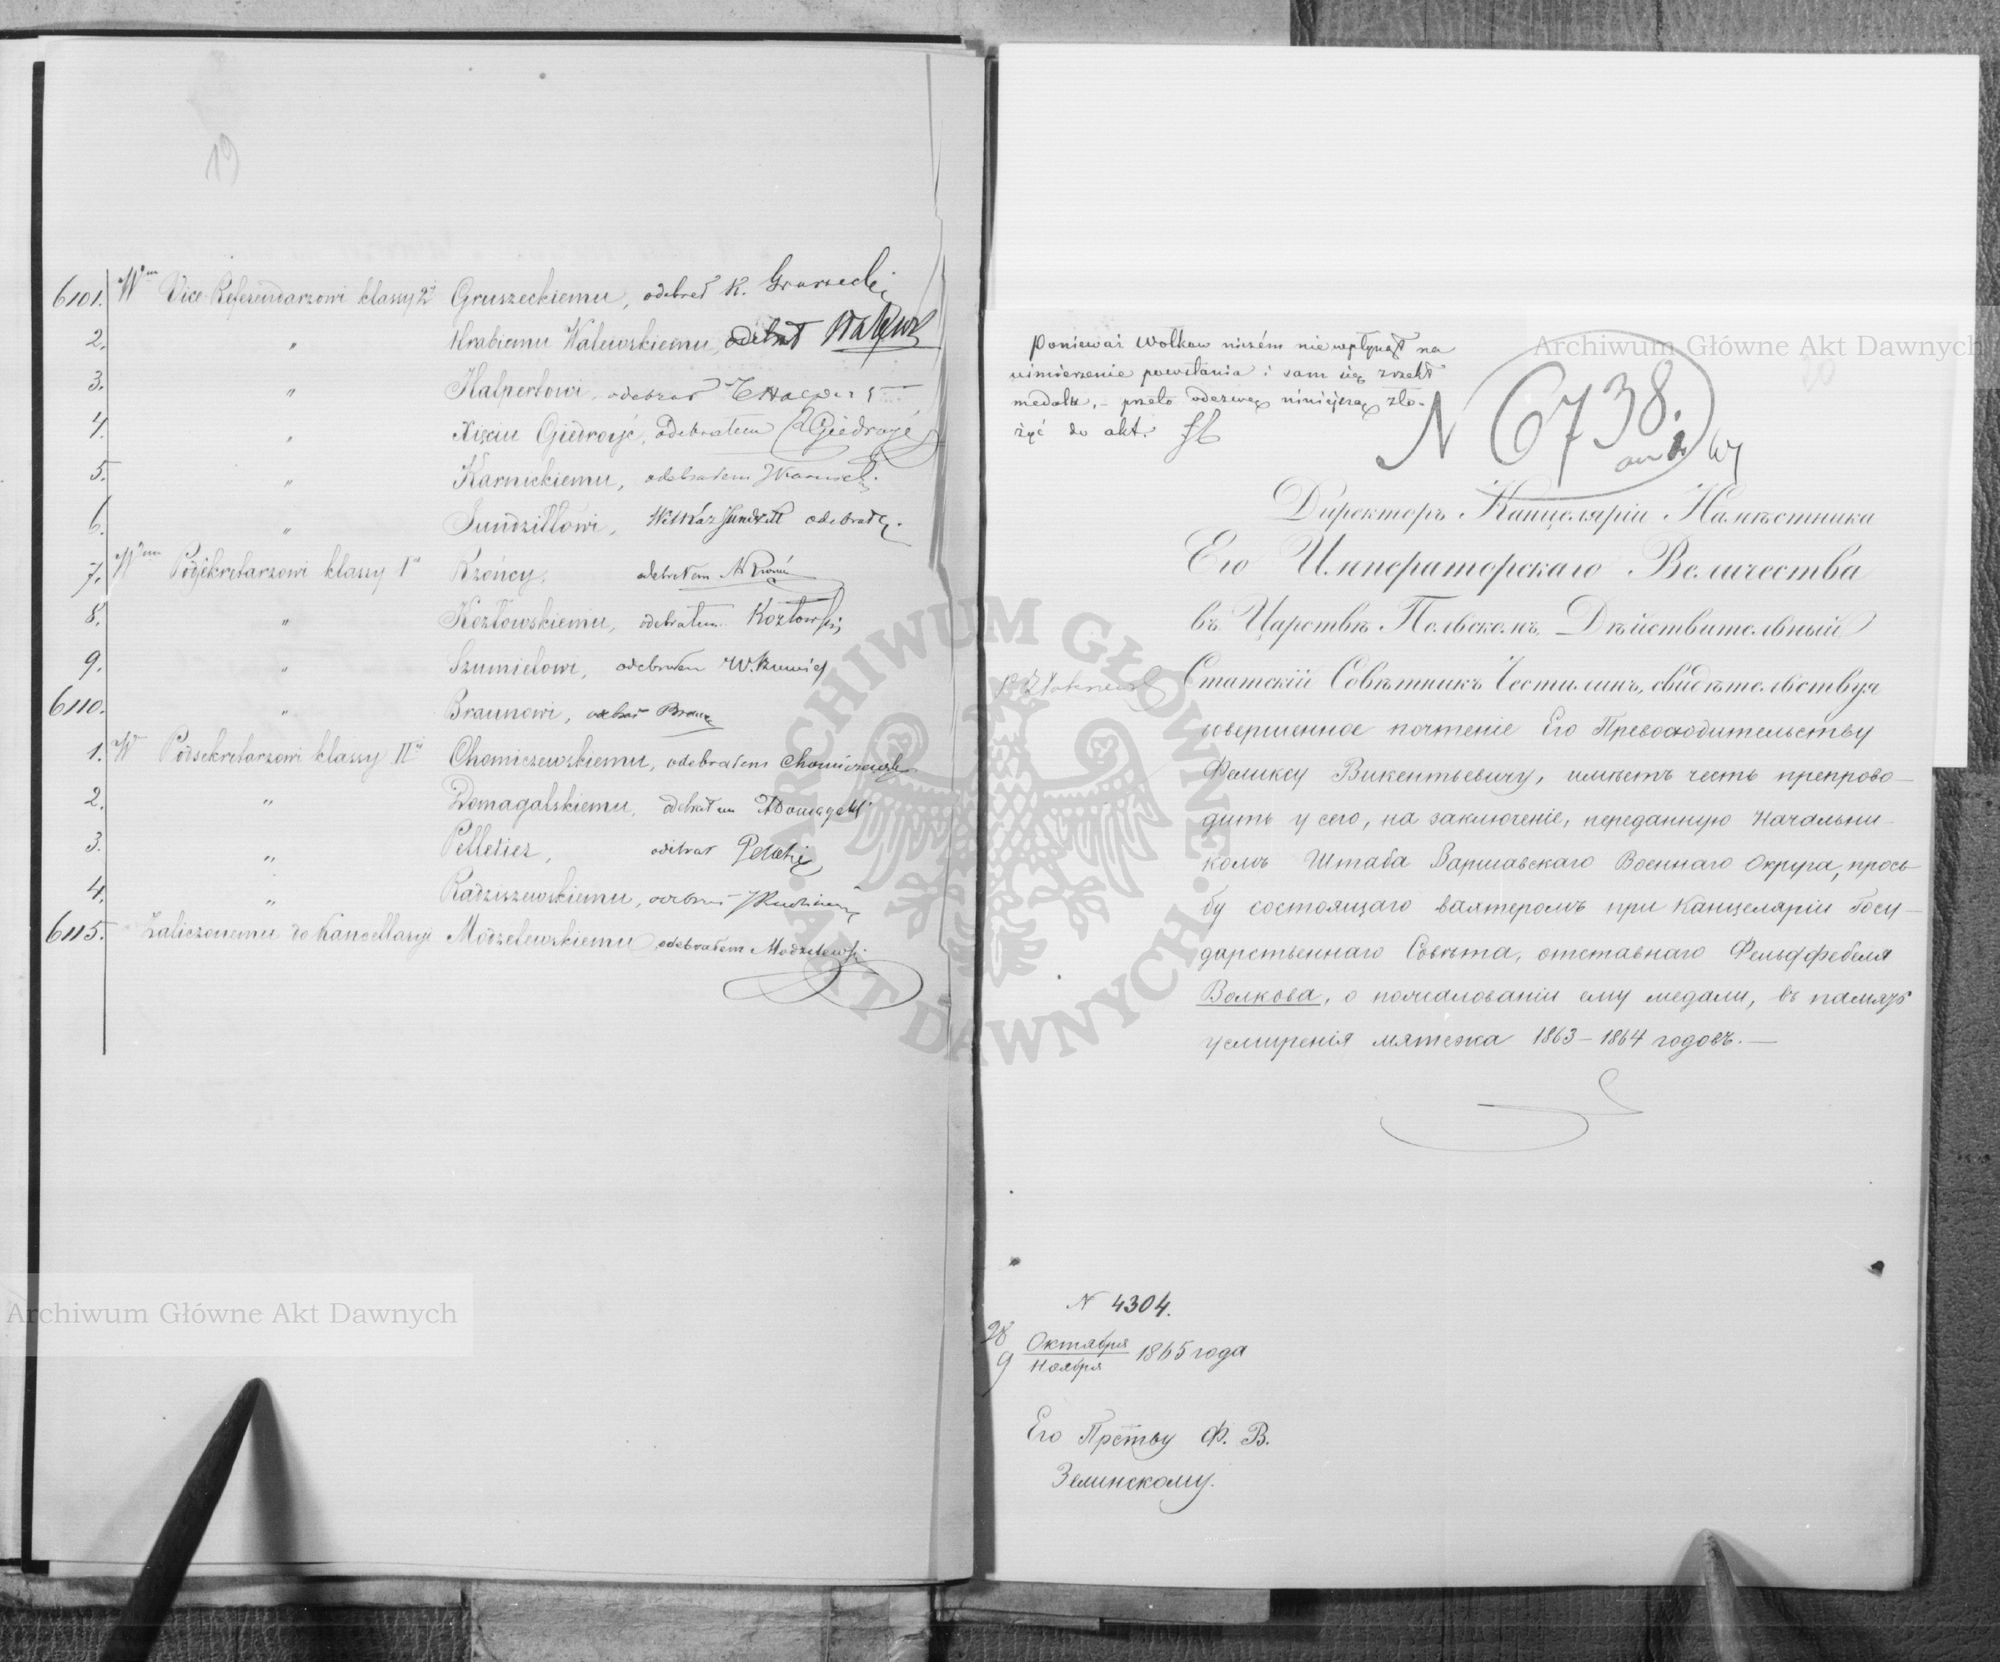 19
6101. Wm Vice Referendarzowi klassy 2ej Gruszeckiemu, odebrał K. Gruszecki
2. " Hrabiemu Walewskiemu, odebrał Walewski
3. " Halpertowi, odebrał Halpert
4. " Xięciu Giedroyć, odebrałem Giedroyć
5. " Karnickiemu, odebrałem Karnicki
6. " Jundziłłowi, odebrał
7. Wm Podsekretarzowi klassy Iej Rzońcy, odebrałem
8. " Kozłowskiemu, odebrałem Kozłowski
9. " Szumielowi, odebrałem W. Szumiel
6110. " Braunowi, odebrał Braun
1. W Podsekretarzowi klassy IIej Chomiczewskiemu, odebrałem Chomiczewski
2. " Domagalskiemu, odebrałem Domagalski
3. " Pelletier, odebrał
4. " Radziszewskiemu, odebrał
6115. Zaliczonemu do Kancellaryi Modzelewskiemu odebrałem Modzelewski
Ponieważ Wołkow niczém nie wpłynął na
uśmierzenie powstania i sam się zrzekł
medalu, – przeto odezwę niniejszą zło-
żyć do akt.
N 6738.
20
Директоръ Канцеляріи Намѣстника
Его Императорскаго Величества
въ Царствѣ Польскомъ, Дѣйствительный
Статскій Совѣтникъ Честилинъ, свидѣтельствуя
совершенное почтеніе Его Превосходительству
Феликсу Викентьевичу, имѣетъ честь препрово-
дить у сего, на заключеніе, переданную Начальни-
комъ Штаба Варшавскаго Военнаго Округа, прось-
бу состоящаго вахтеромъ при Канцеляріи Госу-
дарственнаго Совѣта, отставнаго Фельдфебеля
Волкова, о пожалованіи ему медали, въ память
усмиренія мятежа 1863–1864 годовъ. —
N 4304.
28 Октября
9 Ноября 1865 года
Его Прству Ф. В.
Зелинскому.
Archiwum Główne Akt Dawnych
Archiwum Główne Akt Dawnych
ARCHIWUM GŁÓWNE AKT DAWNYCH